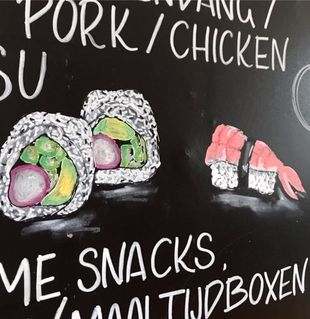 PORK / CHICKEN
SU
ME SNACKS,
/MAALTIJDBOXEN